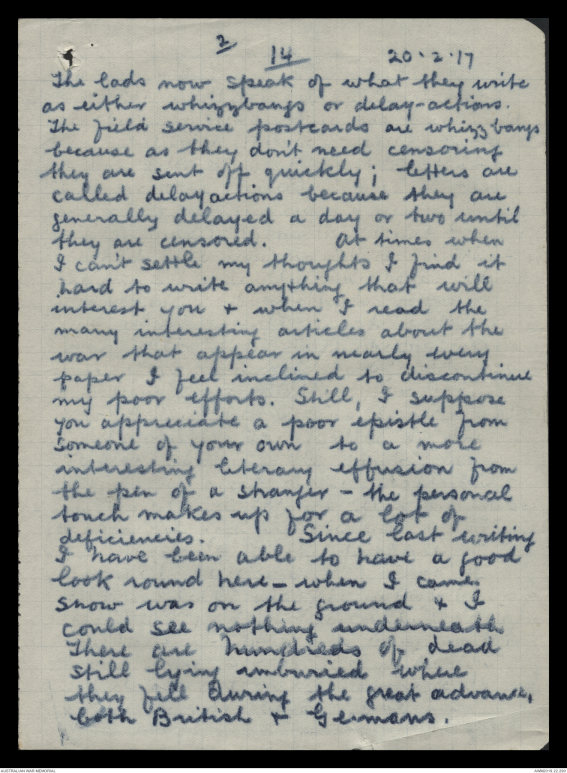 2
14 20.2.17
The lads now speak of what they write
as either whizzbangs or delay-actions.
The field service postcards are whizzbangs
because as they don't need censoring
they are sent off quickly; letters are
called delayactions because they are
generally delayed a day or two until
they are censored. At times when
I can't settle my thoughts I find it
hard to write anything that will
interest you & when I read the
many interesting articles about the
war that appear in nearly every
paper I feel inclined to discontinue
my poor efforts. Still, I suppose
you appreciate a poor epistle from
someone of your own to a more
interesting literary effusion from
the pen of a stranger – the personal
touch makes up for a lot of
deficiencies. Since last writing
I have been able to have a good
look round here – when I came
snow was on the ground & I
could see nothing underneath
There are hundreds of dead
still lying unburied where
they fell during the great advance,
both British & Germans.
AUSTRALIAN WAR MEMORIAL